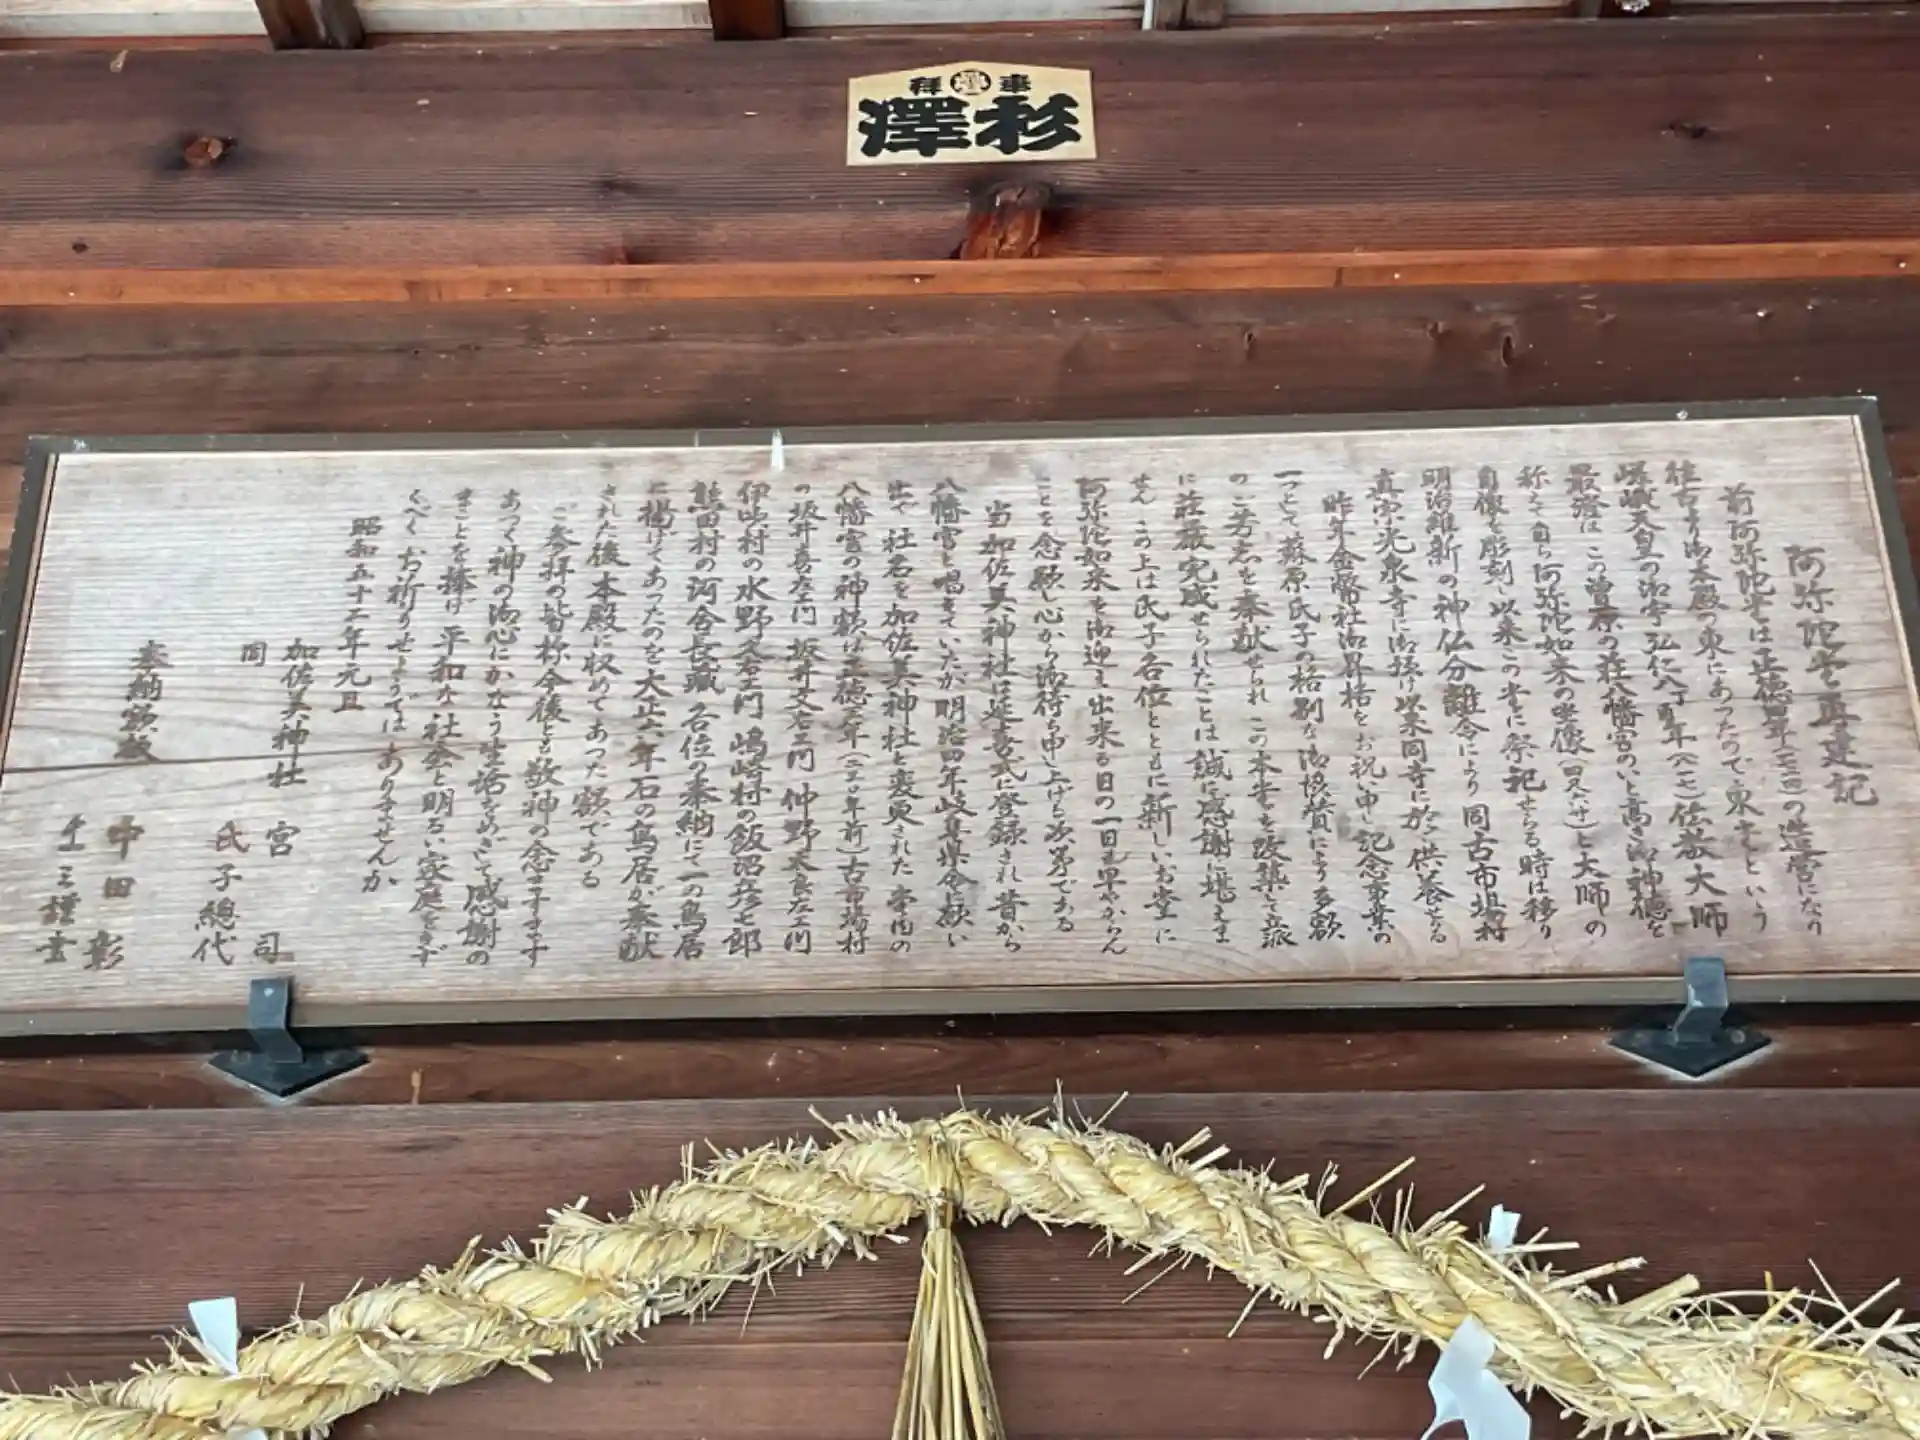 奉拝
杉澤
阿弥陀堂再建記
前阿弥陀堂は正徳年の造営になり
往古より御本殿の東にあったので東堂という
嵯峨天皇の御宇弘仁八丁酉年(八一七)伝教大師
最澄はこの曽原の荘八幡宮のいと高き御神徳を
称えて自ら阿弥陀如来の坐像と大師の
自像を彫刻し以来この堂に祭祀せらる時は移り
明治維新の神仏分離令により同古市場村
真宗光泉寺に御預け以来同寺に於て供養せらる
昨年金幣社御昇格をお祝い申し記念事業の
一つとして蘇原氏子の格別な御協賛により多額
のご芳志を奉献せられこの本堂を改築して立派
に荘厳完成せられたことは誠に感謝に堪えま
せんこの上は氏子各位とともに新しいお堂に
阿弥陀如来を御迎え出来る日の一日も早やからん
ことを念願し心から御待ち申し上げる次第である
当加佐美神社は延喜式に登録され昔から
八幡宮と唱えていたが明治四年岐阜県令に願い
出で社名を加佐美神社と変更された堂内の
八幡宮の神額は正徳元年(二六〇年前)古市場村
の坂井喜左ヱ門坂井又右ヱ門仲野太良左ヱ門
伊吹村の水野久右ヱ門嶋崎村の飯沼彦七郎
熊田村の河合長蔵各位の奉納にて一の鳥居
に揚げてあったのを大正六年石の鳥居が奉献
された後本殿に収めてあった額である
ご参拝の皆称今後とも敬神の念ますます
あつく神の御心にかなう生活をめざして感謝の
まことを捧げ平和な社会と明るい家庭をきず
くべくお祈りせようではありませんか
昭和五十二年元旦
加佐美神社 宮司
同 氏子総代
奉納額板 中田彰
謹書